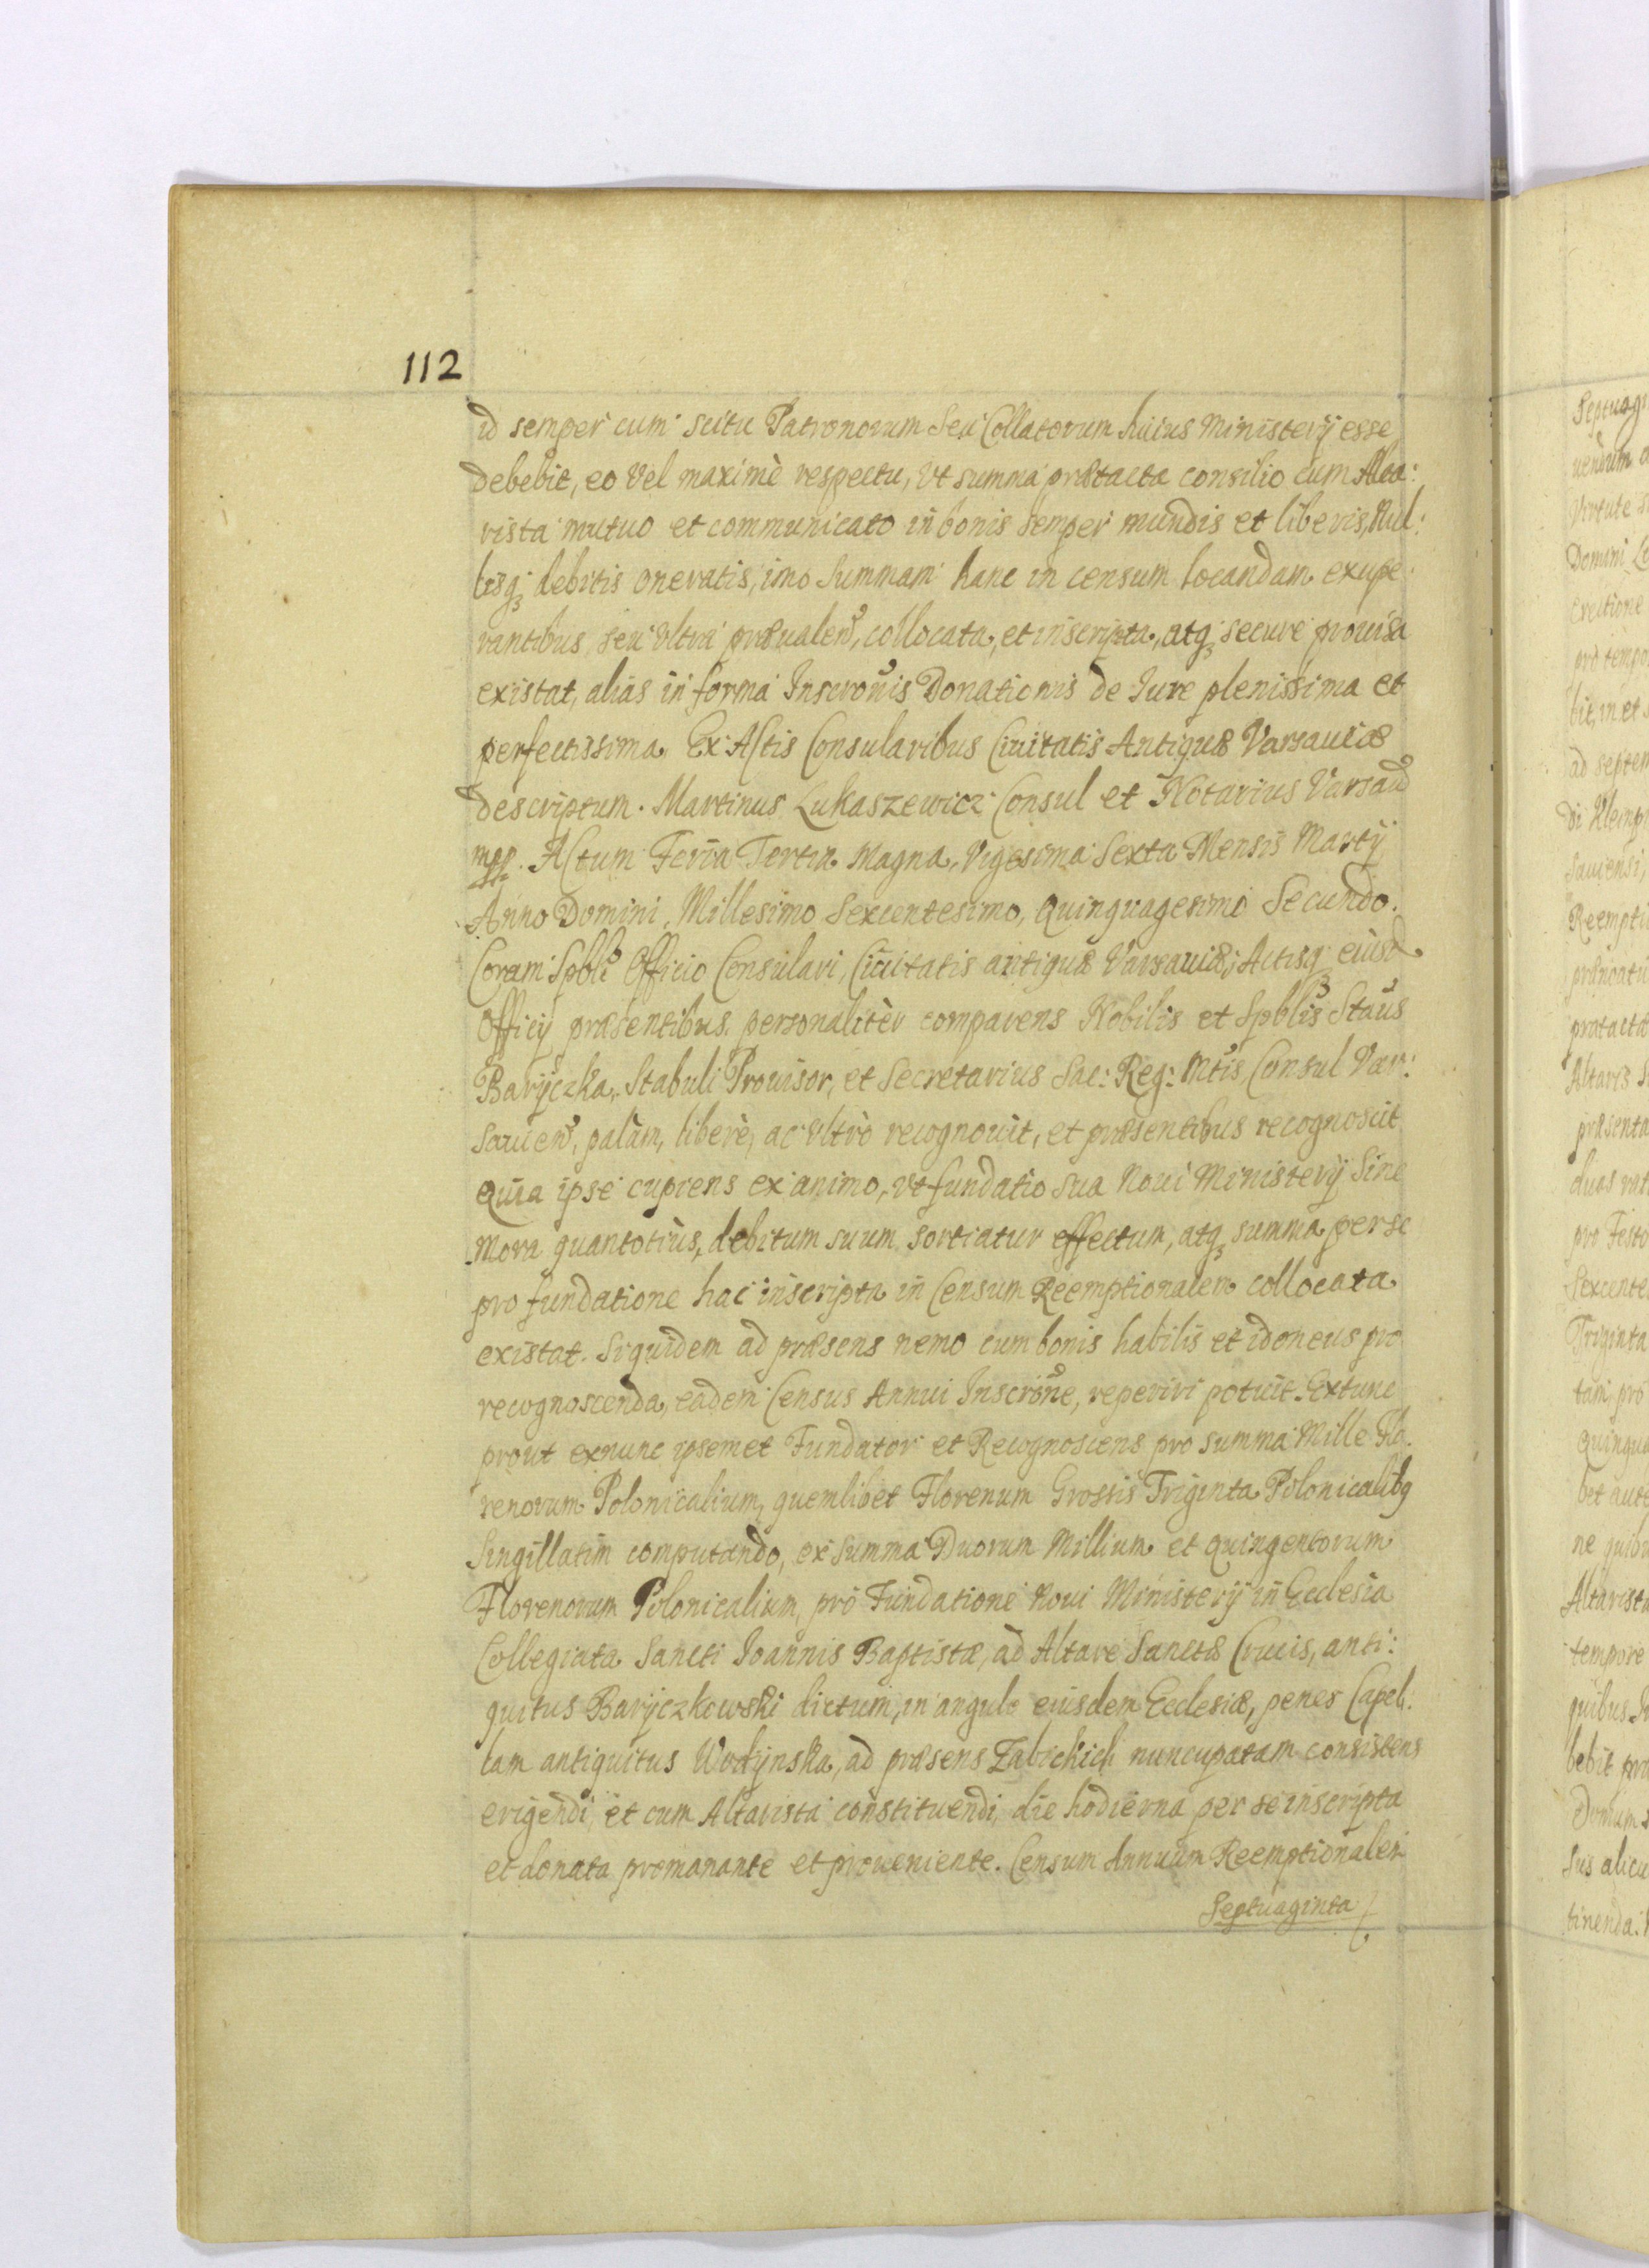 112
id semper cum scitu Patronorum Seu Collatorum huius Ministerij esse
debebit, eo Vel maximè respectu, Vt summa prætacta consilio cum Alta:
rista mutuo et communicato in bonis semper mundis et liberis, Nul:
lisq₃ debitis oneratis, imo Summam hanc in censum locandam exupe:
rantibus, seu Vltra præualeñ, collocata, et inscripta, atq₃ secure prouisa
existat, alias in forma Inscroñis Donationis de Iure plenissima et
perfectissima. Ex Actis Consularibus Ciuitatis Antiquæ Varsauiæ
descriptum. Martinus Lukaszewicz Consul et Notarius Varsaū
mpp. Actum Feria Tertia Magna, Vigesima Sexta Mensis Martij
Anno Domini, Millesimo Sexcentesimo, Quinquagesimo Secundo.
Coram Spbli Officio Consulari, Ciuitatis antiquæ Varsauiæ, Actisq₃ eiusd
Officij præsentibus, personalitèr comparens Nobilis et Spblis Staūs
Baryczka, Stabuli Prouisor, et Secretarius Sac: Reg: Mtis, Consul Var:
sauieñ, palàm, liberè, ac Vltrò recognouit, et præsentibus recognoscit
Quia ipse cupiens ex animo, Vt fundatio sua Noui Ministerij Sine
Mora quantotiùs, debitum suum, sortiatur effectum, atq₃ summa per se
pro fundatione hac inscripta in Censum Reemptionalem collocata
existat. Siquidem ad præsens nemo cum bonis habilis et idoneus pro
recognoscenda, eadem Census Annui Inscriōne, reperiri potuit. Extunc
prout exnunc ipsemet Fundator et Recognoscens pro summa Mille Flo:
renorum Polonicalium, quemlibet Florenum Grossis Triginta Polonicalibq
Singillatim computando, ex Summa Duorum Millium et Quingentorum
Florenorum Polonicalium, pro Fundatione Noui Ministerij in Ecclesia
Collegiata Sancti Ioannis Baptistæ, ad Altare Sanctæ Crucis, anti:
quitus Baryczkowski dictum, in angulo eiusdem Ecclesiæ, penes Capel:
lam antiquitus Wodynska, ad præsens Zabickich nuncupatam consistens
erigendi, et cum Altarista constituendi, die hodierna per se inscripta
et donata promanante et proueniente. Censum Annuum Reemptionalem
Septuaginta